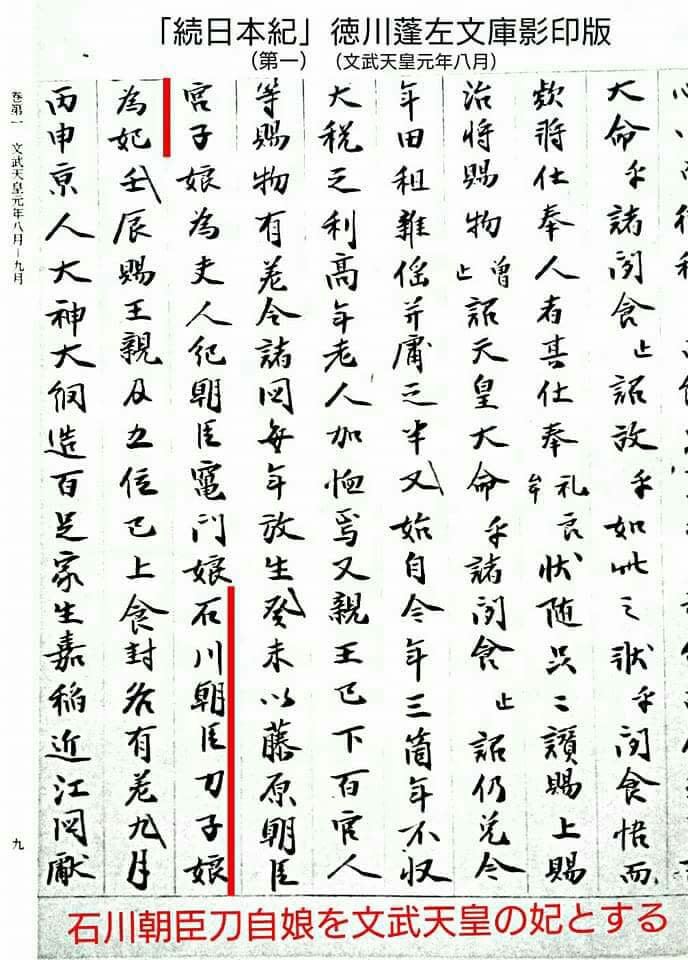 「続日本紀」徳川蓬左文庫影印版
(第一) (文武天皇元年八月)
大命乎諸聞食止詔故乎如此之状乎聞食悟而
欵将仕奉人者其仕奉礼良牟状随品々讃賜上賜
治将賜物曽止詔天皇大命乎諸聞食止詔仍免今
年田租雑徭并庸之半又始自今年三箇年不収
大税之利高年老人加恤焉又親王已下百官人
等賜物有差令諸国毎年放生癸未以藤原朝臣
宮子娘為夫人紀朝臣竃門娘石川朝臣刀子娘
為妃壬辰賜王親及五位已上食封各有差九月
丙申京人大神大網造百足家生嘉稲近江国献
巻第一 文武天皇元年八月―九月
九
石川朝臣刀自娘を文武天皇の妃とする